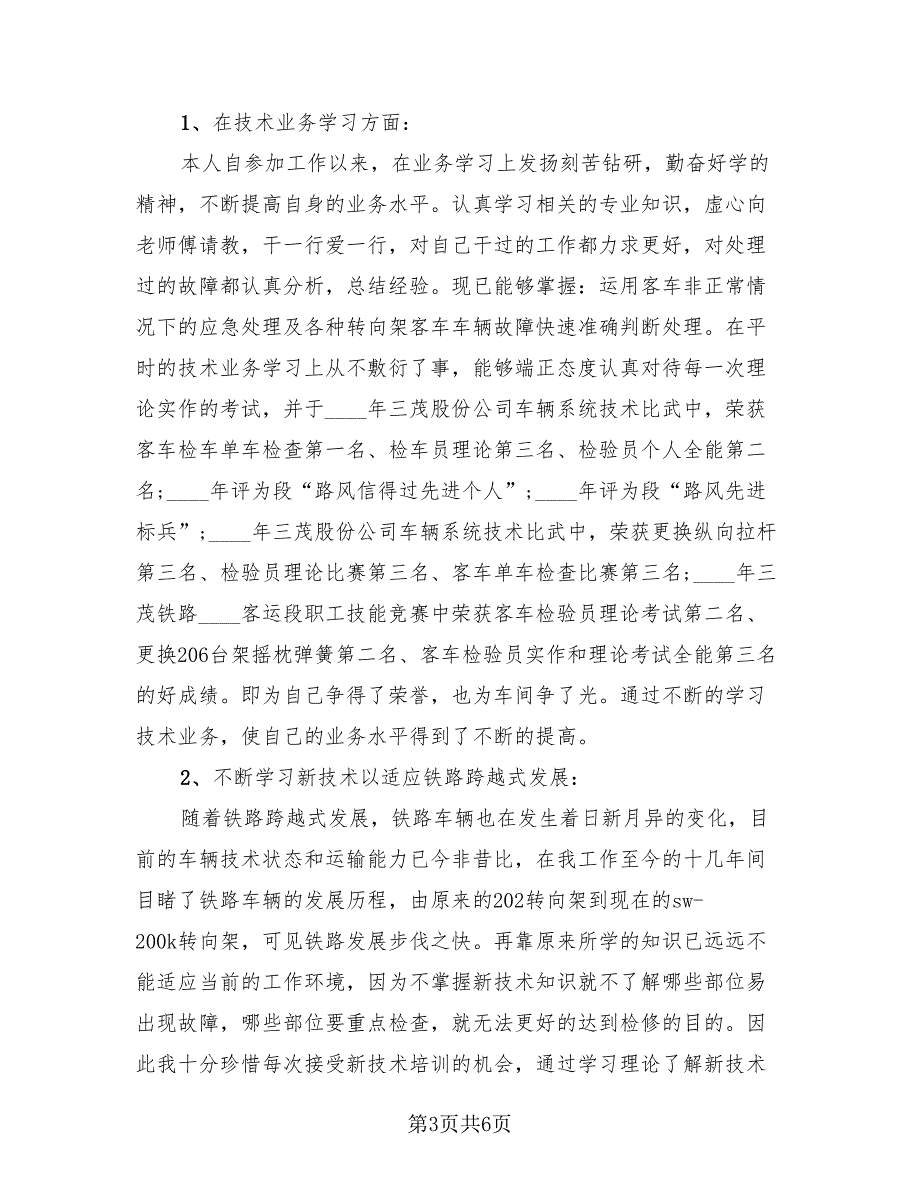 1、在技术业务学习方面：
本人自参加工作以来，在业务学习上发扬刻苦钻研，勤奋好学的
精神，不断提高自身的业务水平。认真学习相关的专业知识，虚心向
老师傅请教，干一行爱一行，对自己干过的工作都力求更好，对处理
过的故障都认真分析，总结经验。现已能够掌握：运用客车非正常情
况下的应急处理及各种转向架客车车辆故障快速准确判断处理。在平
时的技术业务学习上从不敷衍了事，能够端正态度认真对待每一次理
论实作的考试，并于____年三茂股份公司车辆系统技术比武中，荣获
客车检车单车检查第一名、检车员理论第三名、检验员个人全能第二
名;____年评为段“路风信得过先进个人”;____年评为段“路风先进
标兵”;____年三茂股份公司车辆系统技术比武中，荣获更换纵向拉杆
第三名、检验员理论比赛第三名、客车单车检查比赛第三名;____年三
茂铁路____客运段职工技能竞赛中荣获客车检验员理论考试第二名、
更换206台架摇枕弹簧第二名、客车检验员实作和理论考试全能第三名
的好成绩。即为自己争得了荣誉，也为车间争了光。通过不断的学习
技术业务，使自己的业务水平得到了不断的提高。
2、不断学习新技术以适应铁路跨越式发展：
随着铁路跨越式发展，铁路车辆也在发生着日新月异的变化，目
前的车辆技术状态和运输能力已今非昔比，在我工作至今的十几年间
目睹了铁路车辆的发展历程，由原来的202转向架到现在的sw-
200k转向架，可见铁路发展步伐之快。再靠原来所学的知识已远远不
能适应当前的工作环境，因为不掌握新技术知识就不了解哪些部位易
出现故障，哪些部位要重点检查，就无法更好的达到检修的目的。因
此我十分珍惜每次接受新技术培训的机会，通过学习理论了解新技术
第3页共6页